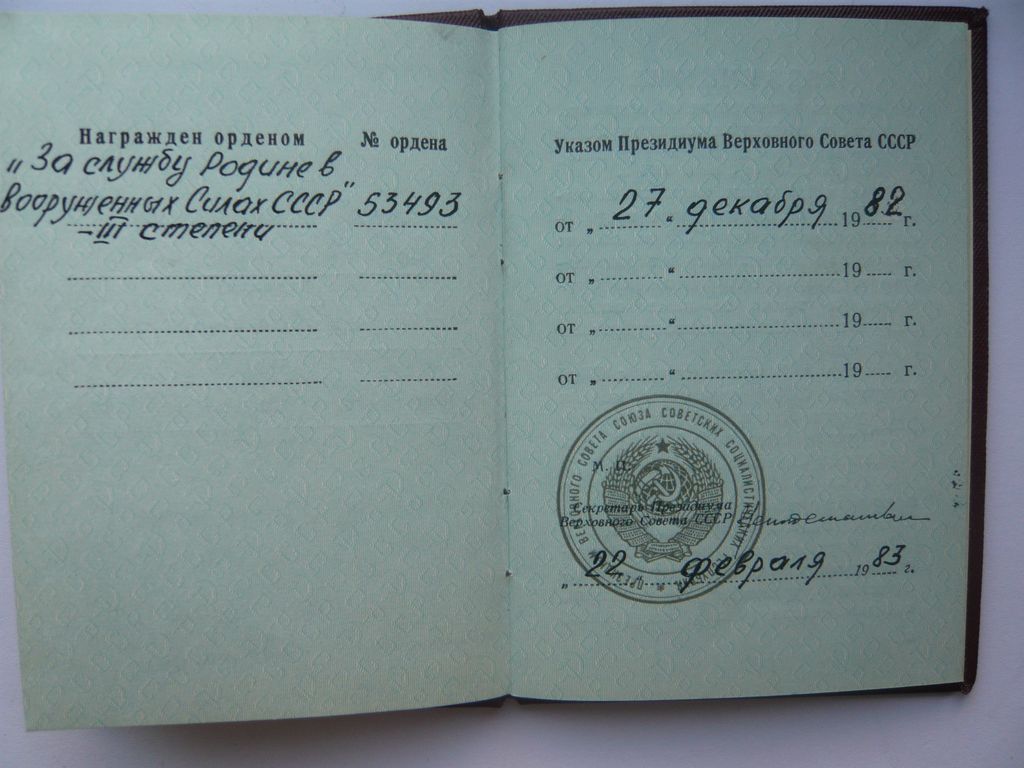 Награжден орденом № ордена
„За службу Родине в
Вооруженных Силах СССР" 53493
– III степени
Указом Президиума Верховного Совета СССР
от „ 27 “ декабря 1982 г.
от „ “ 19 г.
от „ “ 19 г.
от „ “ 19 г.
ПРЕЗИДИУМ ВЕРХОВНОГО СОВЕТА СОЮЗА СОВЕТСКИХ СОЦИАЛИСТИЧЕСКИХ РЕСПУБЛИК
М. П.
Секретарь Президиума
Верховного Совета СССР
„ 22 февраля 1983 г.